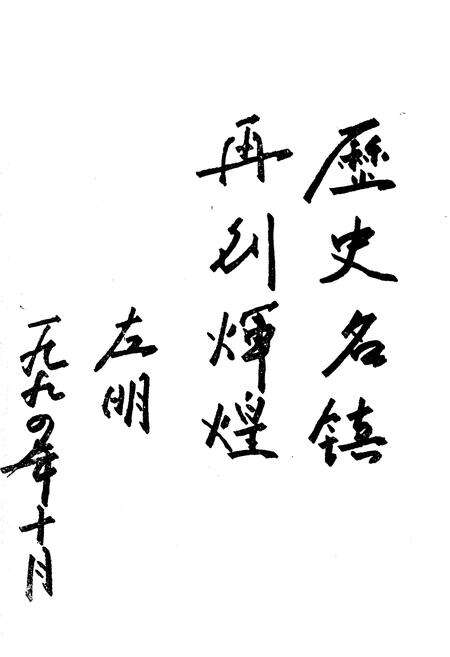 歷史名镇
再创辉煌
左明
一九九四年十月